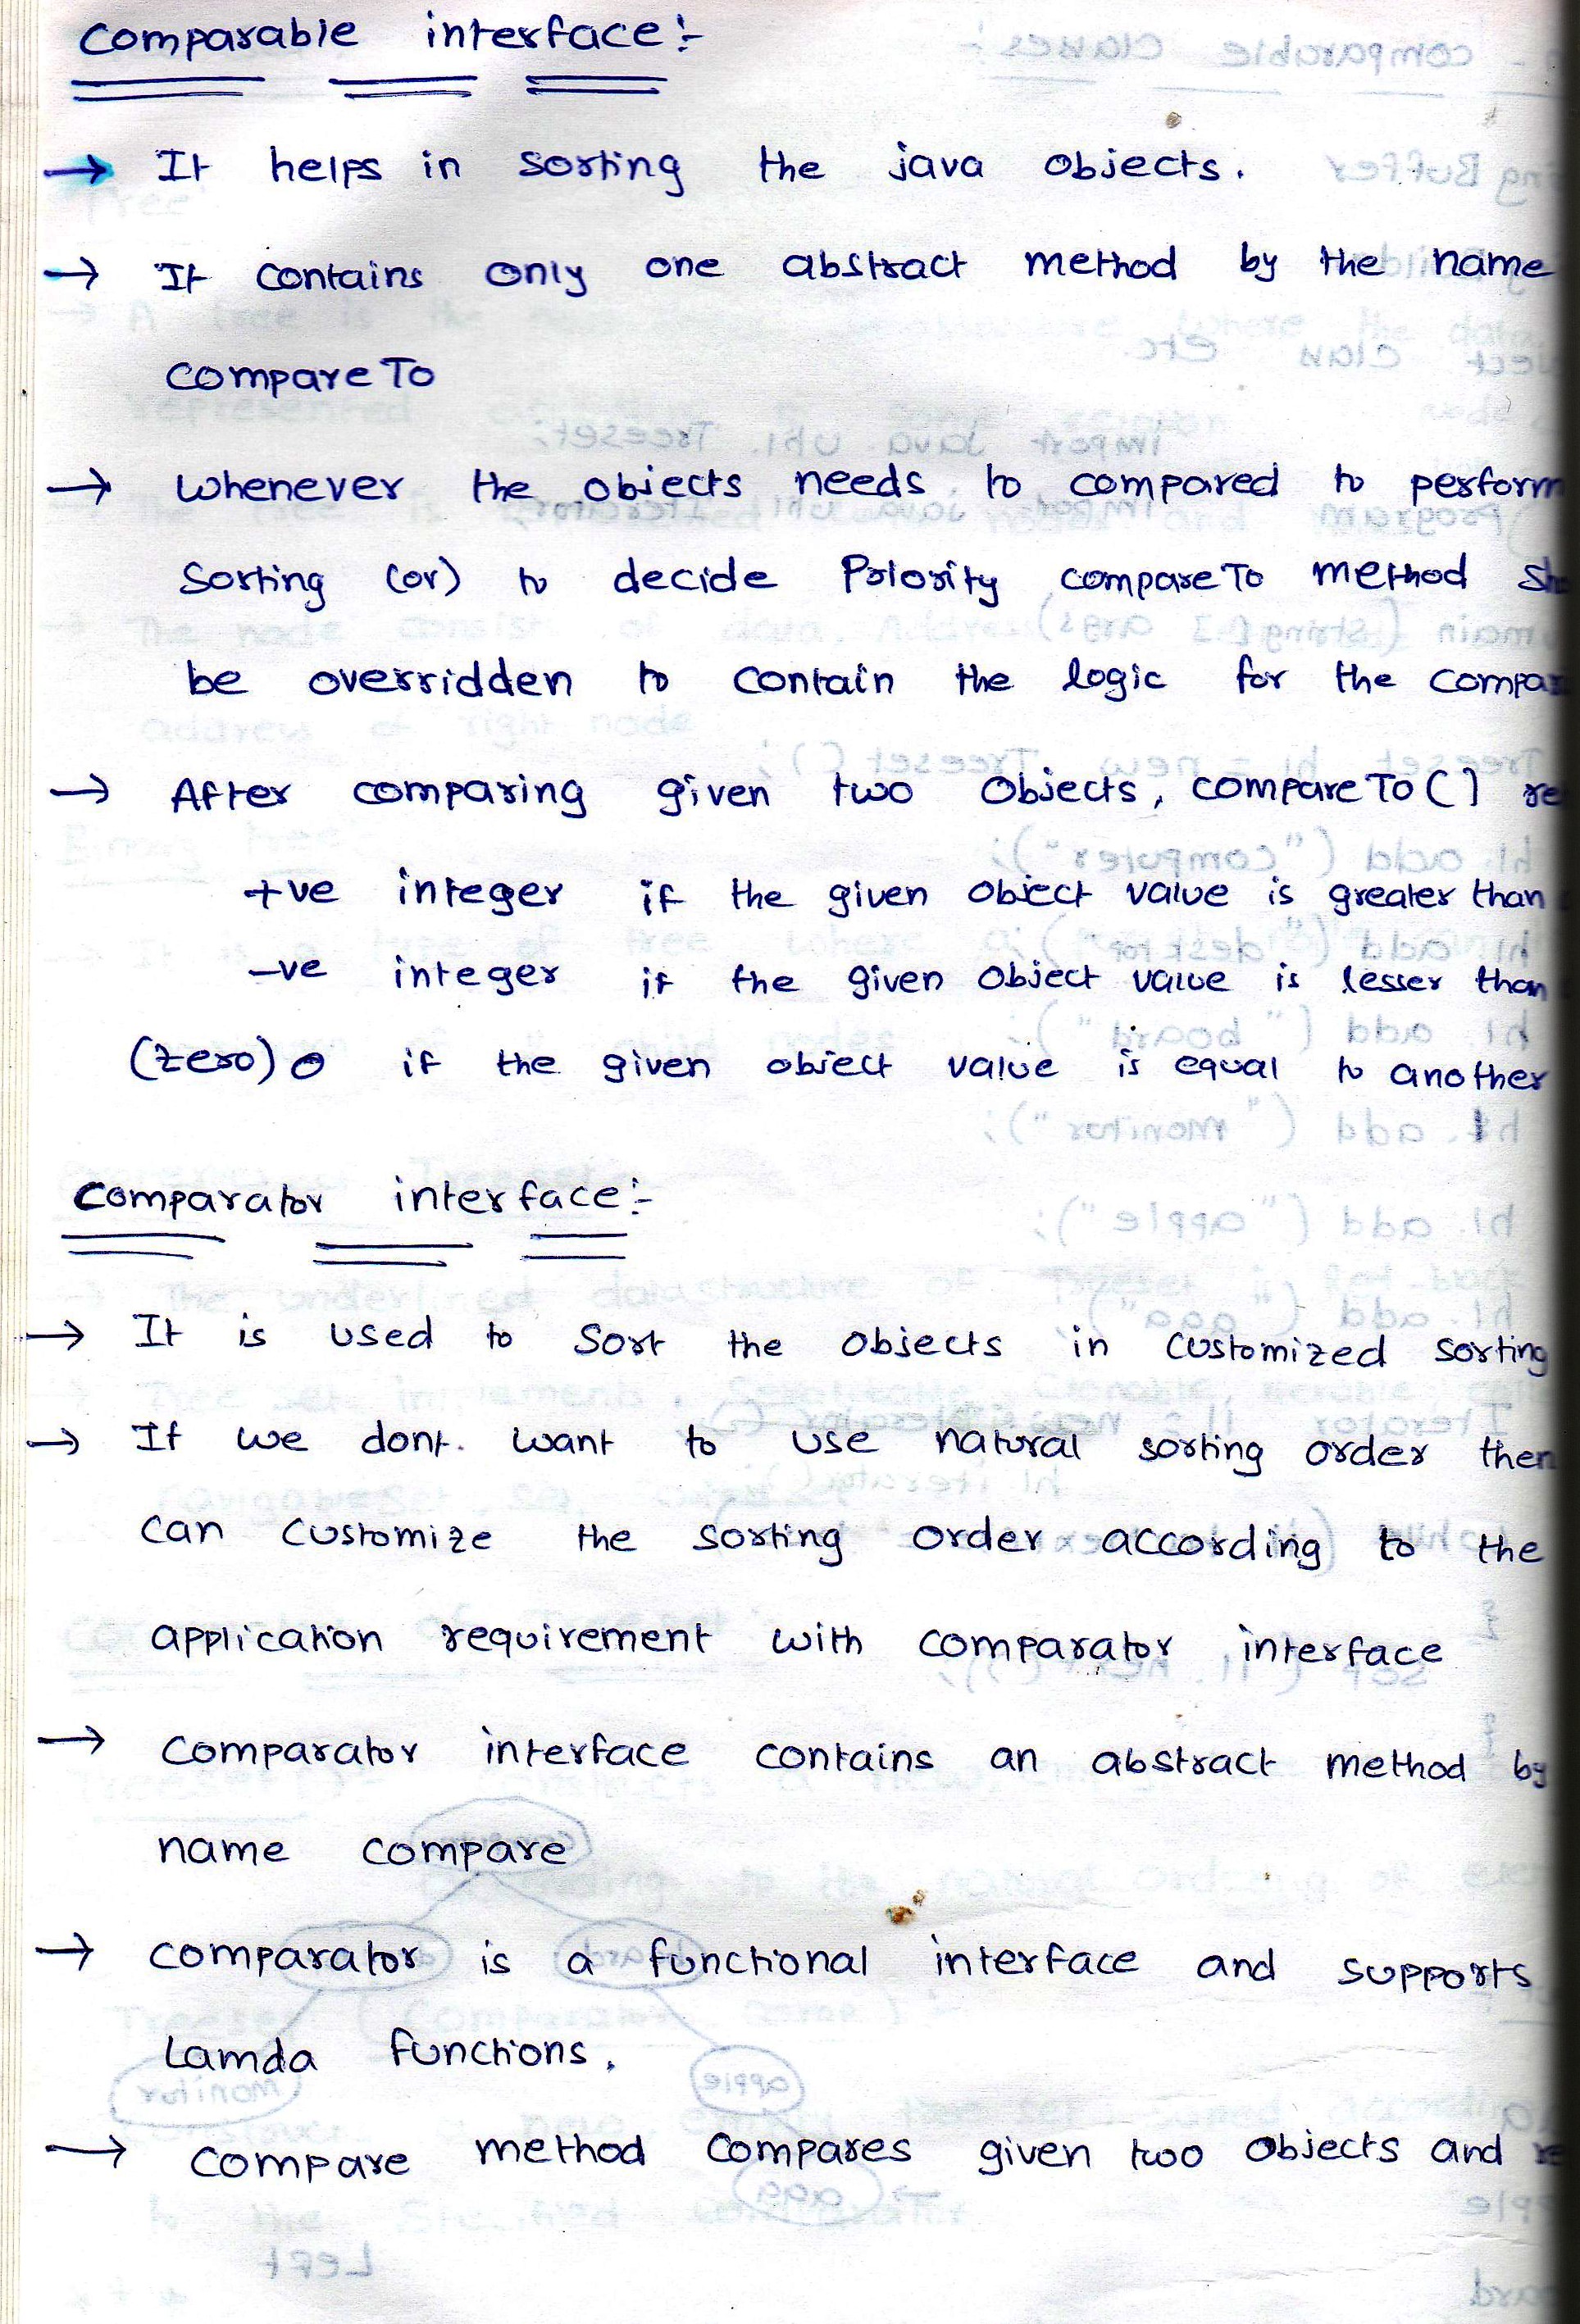 Comparable interface:-
→ It helps in sorting the java objects.
→ It contains only one abstract method by the name
compareTo
→ whenever the objects needs to compared to perform
sorting (or) to decide Priority compareTo method
be overridden to contain the logic for the
→ After comparing given two Objects, compareTo()
+ve integer if the given object value is greater than
-ve integer if the given Object value is lesser than
(zero) 0 if the given object value is equal to another
Comparator interface:-
→ It is used to sort the objects in customized sorting
→ If we dont. want to use natural sorting order then
can customize the sorting order according to the
application requirement with comparator interface
→ comparator interface contains an abstract method by
name compare
→ comparator is a functional interface and supports
Lamda functions.
→ compare method compares given two objects and